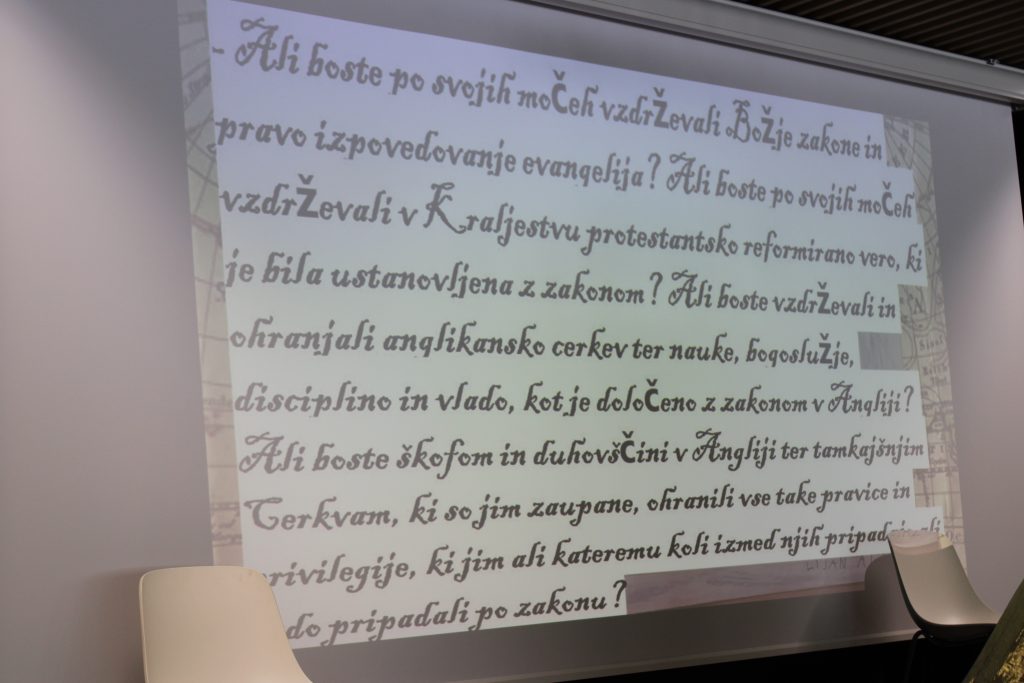 - Ali boste po svojih moČeh vzdrŽevali BoŽje zakone in
pravo izpovedovanje evangelija? Ali boste po svojih moČeh
vzdrŽevali v Kraljestvu protestantsko reformirano vero, ki
je bila ustanovljena z zakonom? Ali boste vzdrŽevali in
ohranjali anglikansko cerkev ter nauke, bogosluŽje,
disciplino in vlado, kot je doloČeno z zakonom v Angliji?
Ali boste škofom in duhovšČini v Angliji ter tamkajšnjim
Cerkvam, ki so jim zaupane, ohranili vse take pravice in
privilegije, ki jim ali kateremu koli izmed njih
do pripadali po zakonu?